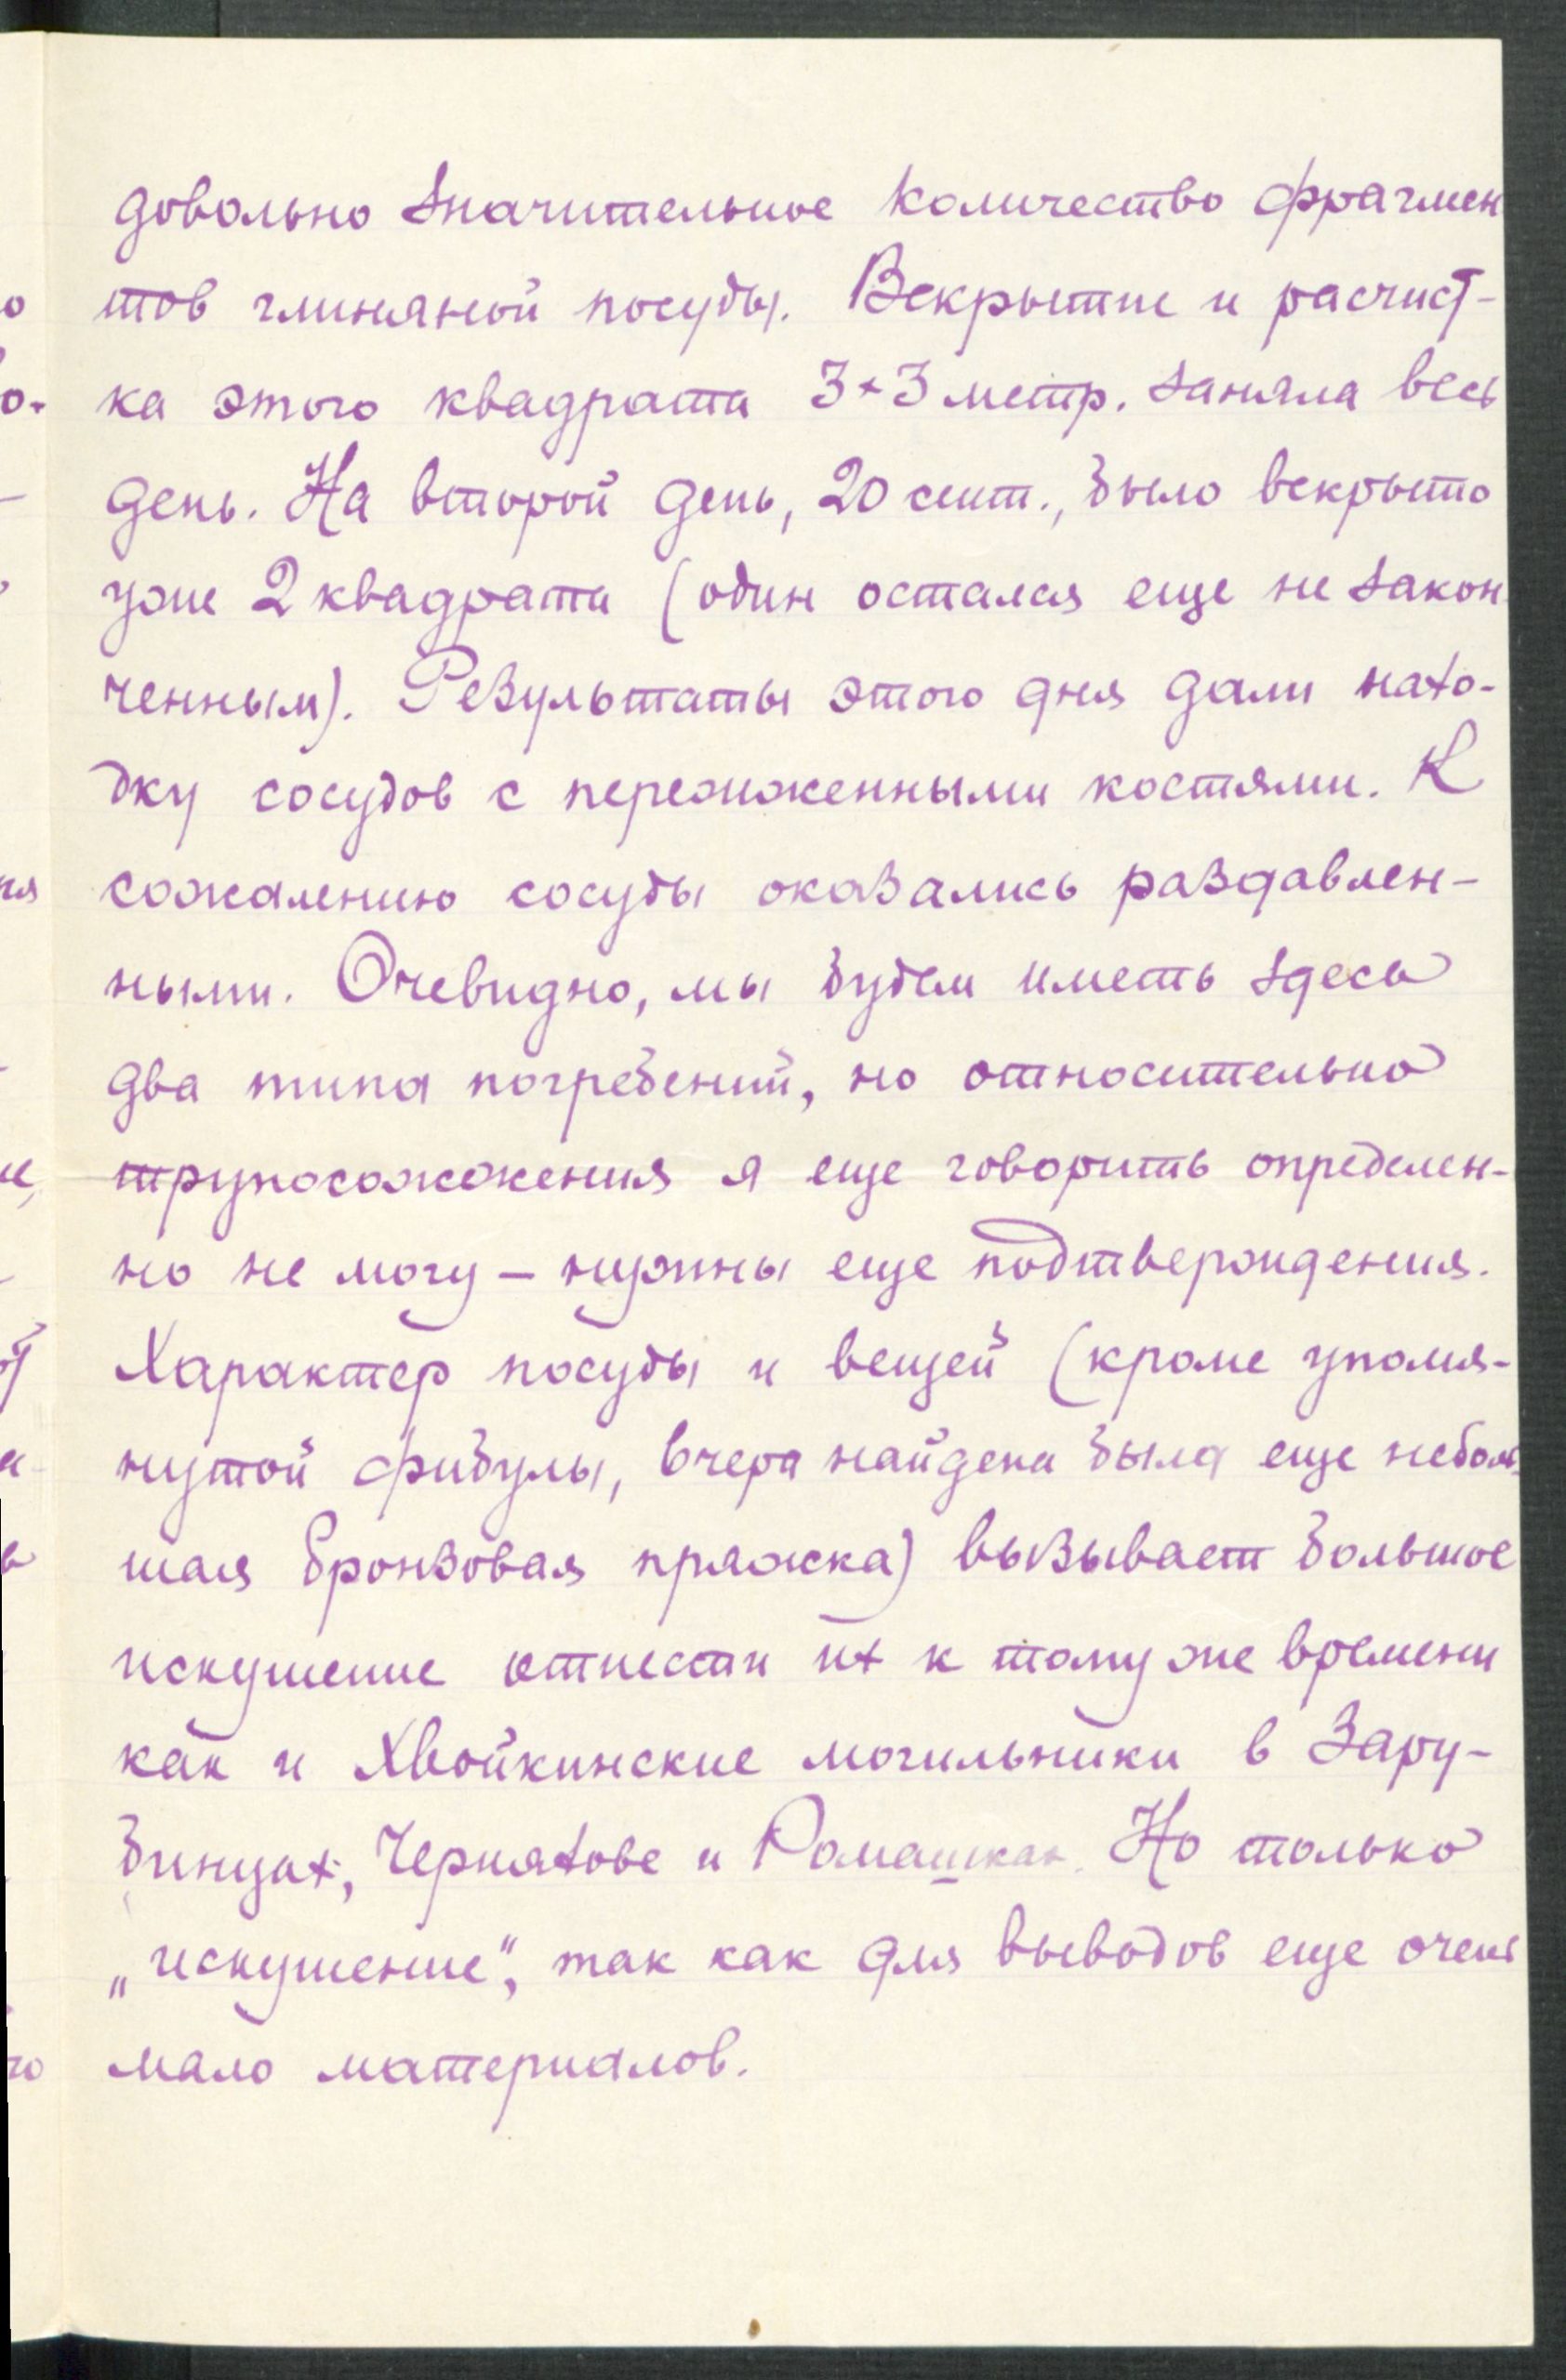 довольно значительное количество фрагмен
тов глиняной посуды. Вскрытие и расчист-
ка этого квадрата 3×3 метр. заняла весь
день. На второй день, 20 сент., было вскрыто
уже 2 квадрата (один остался еще не закон
ченным). Результаты этого дня дали нахо-
дку сосудов с пережженными костями. К
сожалению сосуды оказались раздавлен-
ными. Очевидно, мы будем иметь здесь
два типа погребений, но относительно
трупосожжения я еще говорить определен-
но не могу — нужны еще подтверждения.
Характер посуды и вещей (кроме упомя-
нутой фибулы, вчера найдена была еще неболь-
шая бронзовая пряжка) вызывает большое
искушение отнести их к тому же времени
как и Хвойкинские могильники в Зару-
бинцах, Черняхове и Ромашках. Но только
„искушение“, так как для выводов еще очень
мало материалов.